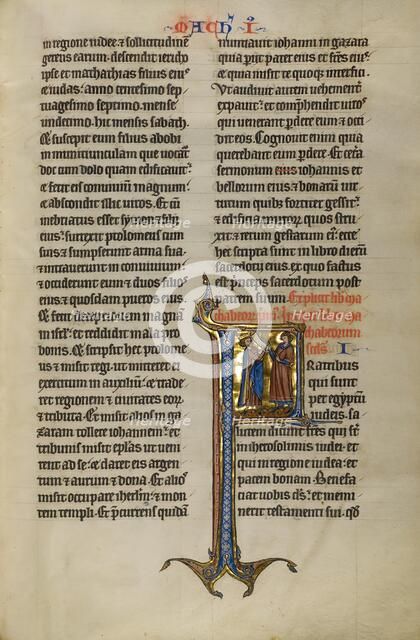 MACH I
in regione iudee: ⁊ sollicitudinē
gerens earum. descendit iericho
ipse et mathathias filius eius
⁊ iudas. anno centesimo sep
tuagesimo septimo. mense
undecimo. hic mensis sabath.
⁊ suscepit eum filius abobi
in munitiunculam que vocatur
doc cum dolo quam edificavit:
⁊ fecit eis convivium magnum
⁊ abscondit illic viros. Et cū
inebriatus esset symon ⁊ filii
eius: surrexit ptolomeus cum
suis ⁊ sumpserunt arma sua
⁊ intraverunt in convivium
⁊ occiderunt eum ⁊ duos filios
eius ⁊ quosdam pueros eius.
et fecit deceptionem magnam
in isrl. et reddidit mala pro
bonis. ⁊ scripsit hec ptolome
us ⁊ misit regi. ut mitteret ei
exercitum in auxiliū. ⁊ trade
ret regionem ⁊ civitates eorū
⁊ tributa. Et misit alios in ga
zaram tollere iohannem: et
tribunis misit eplas ut veni
rent ad se: ⁊ daret eis argen
tum ⁊ aurum ⁊ dona. Et alios
misit occupare iherlm ⁊ mon
tem templi. Et pcurrens quidā
nuntiavit iohanni in gazara
quia periit pater eius ⁊ fres eius:
⁊ quia misit te quoque interfici.
Ut audivit autem vehementer
expavit: et comprehendit viros
qui venerant perdere eum ⁊ occi
dit eos. Cognovit enim quia
querebant eum perdere. Et cetera
sermonum eius iohannis et
bellorum eius ⁊ bonarū vir
tutum quibus fortiter gessit:
⁊ edificii murorum quos struxit
xit ⁊ rerum gestarum ei: ecce
hec scripta sunt in libro dierū
sacerdotii eius. ex quo factus
est princeps sacerdotum post
patrem suum. Explicit lib ma
chabeorum
chabeorum
scds. I
Fratribus
qui sunt
per egyptū
iudeis. sa
lutem dicunt fres qui st
in iherosolimis iudei. et
qui in regione iudea: et
pacem bonam. Benefa
ciat vobis ds: et memi
nerit testamenti sui. qd
Heritage
Heritage
Heritage
Heritage
Heritage